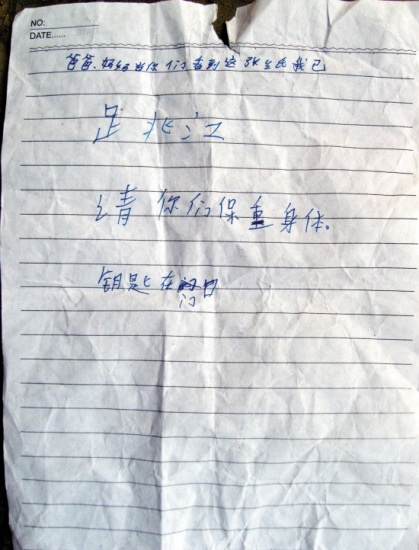 NO:
DATE......
爸爸、妈妈当你们看到这张纸我已
跳江
请你们保重身体。
钥匙在口
门